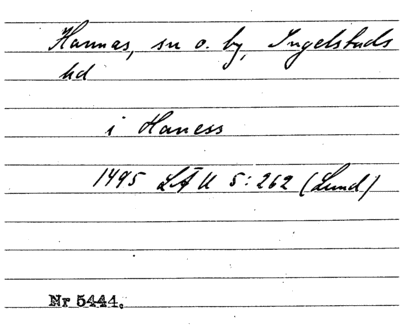 Hannas, sn o. by, Ingelstads
hd
i Haness
1495 LÄU 5:262 (Lund)
Nr 5444.